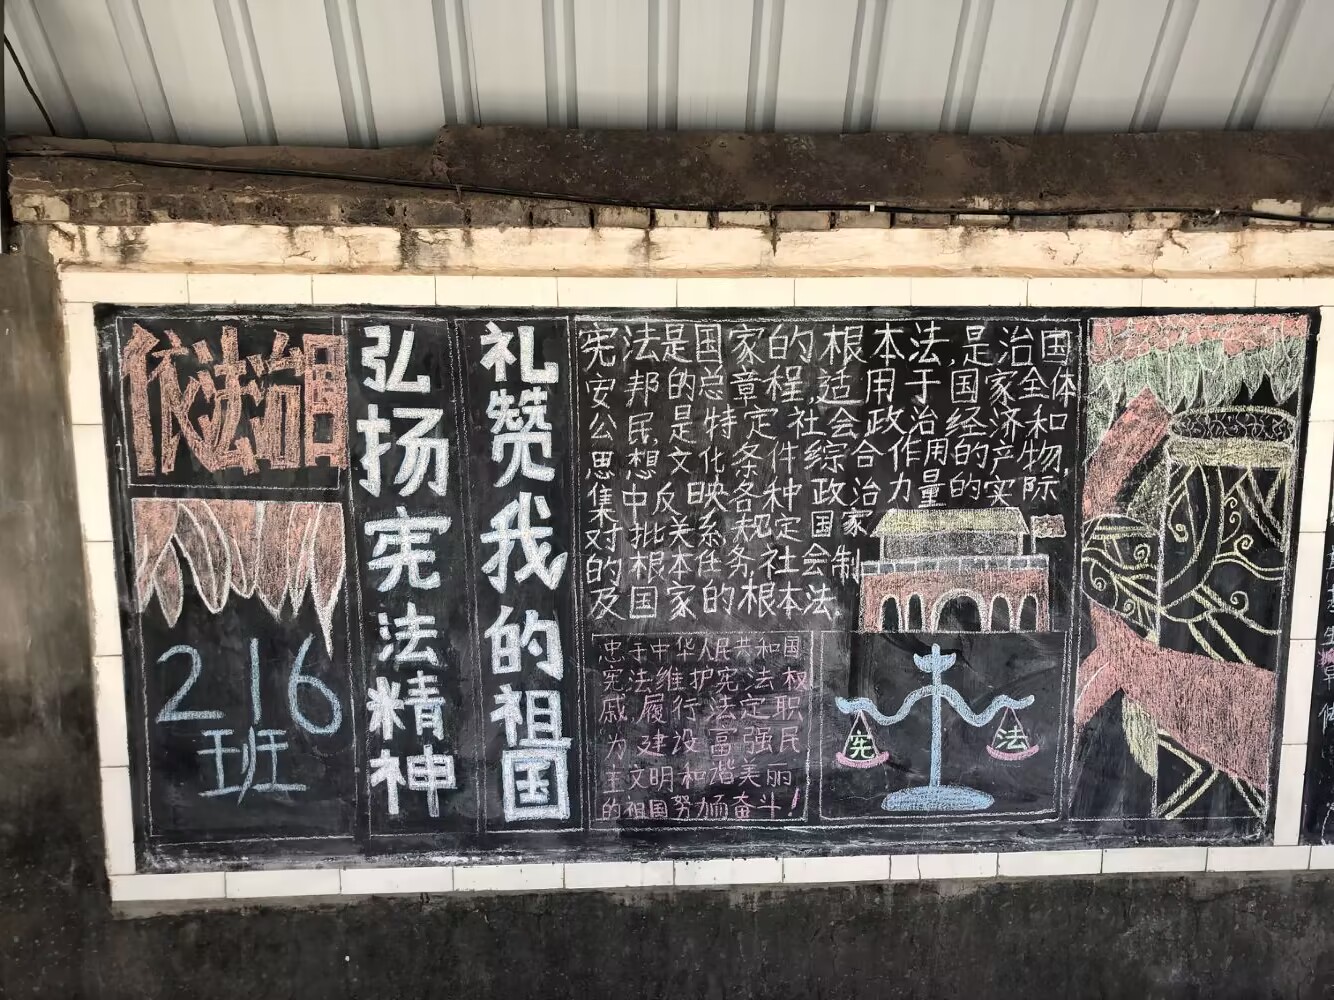 依法治国
216
班
弘扬宪法精神
礼赞我的祖国
宪法是国家的根本法,是治国
安邦的总章程,适用于国家全体
公民,是特定社会政治经济和
思想文化条件综合作用的产物,
集中反映各种政治力量的实际
对批关系规定国家
的根本任务社会制
及国家的根本法。
忠于中华人民共和国
宪法维护宪法权
威,履行法定职
为建设富强民
主文明和谐美丽
的祖国努力而奋斗!
宪
法